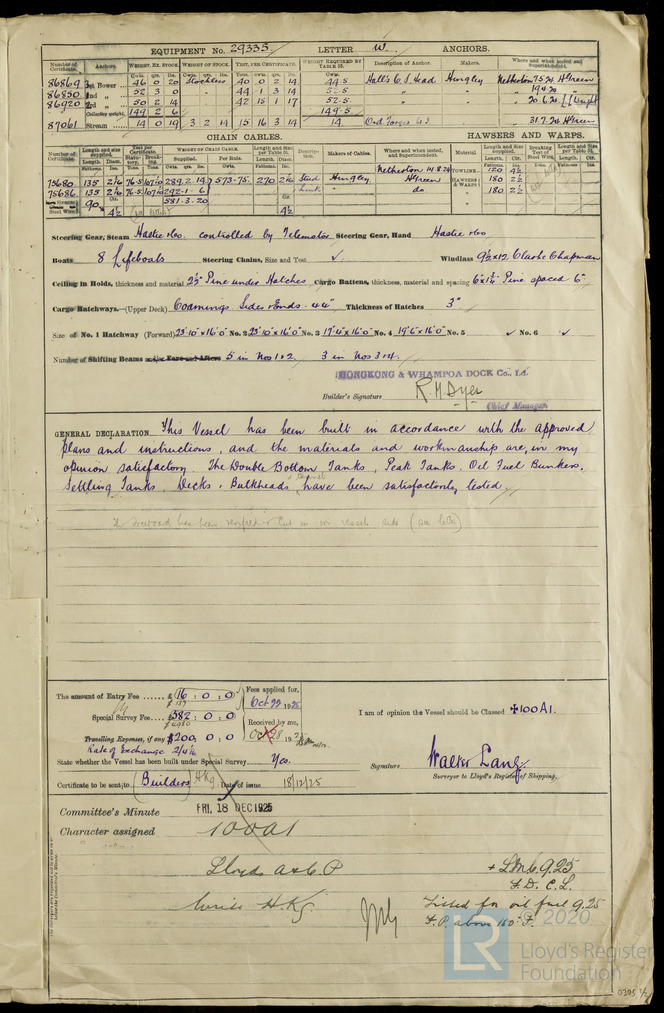 EQUIPMENT No. 29335 LETTER W. ANCHORS.
Number of Certificate. Anchors. WEIGHT, EX. STOCK WEIGHT OF STOCK. TEST, PER CERTIFICATE. WEIGHT REQUIRED BY TABLE 53. Description of Anchor. Makers. Where and when tested and Superintendent.
Cwts. qrs. lbs.
86869 1st Bower 46 0 20 Stockless 40 0 2 14 44.5 Hall's C.S. Head Hingley Netherton 7.5.24 H Green
86850 2nd " 52 3 0 44 1 3 14 52.5 " " 19.4.24
86920 3rd " 50 2 14 42 15 1 17 52.5 " " 20.6.24
Collective weight 149 2 6 149.5
87061 Stream 14 0 19 3 2 14 15 16 3 14 14 Ord Forged " 31.7.24 H Green
CHAIN CABLES. HAWSERS AND WARPS.
Number of Certificate. Length and size supplied. Test per Certificate. WEIGHT OF CHAIN CABLE. Length and Size per Table 53. Description. Makers of Cables. Where and when tested, and Superintendent. Material Length and Size supplied. Breaking Test of Steel Wire. Length and Size per Table 53.
Netherton 14.8.24 TOWLINE 120 4½
75680 135 2 1/16 76.5 107 289.2.14 573-75. 270 2 1/16 Stud Hingley H Green HAWSERS & WARPS 180 2½
75686 135 2 1/16 76.5 107 292-1.6 Link " do " 180 2½
581.3.20
90 4½ 4½
Steering Gear, Steam Hastie & Co. controlled by Telemotor Steering Gear, Hand Hastie & Co
Boats 8 Lifeboats Steering Chains, Size and Test ✓ Windlass 9½x12 Clarke Chapman
Ceiling in Holds, thickness and material 2½" Pine under Hatches Cargo Battens, thickness, material and spacing 6"x1¾" Pine spaced 6"
Cargo Hatchways.—(Upper Deck) Coamings Sides & Ends - 44" Thickness of Hatches 3"
Size of No. 1 Hatchway (Forward) 23'10"x16'0" No. 2 23'10"x16'0" No. 3 17'4"x16'0" No. 4 19'6"x16'0" No. 5 ✓ No. 6 ✓
Number of Shifting Beams and/or Fore and Afters 5 in Nos 1&2. 3 in Nos 3&4.
HONGKONG & WHAMPOA DOCK Co., Ld.
Builder's Signature R.M Dyer
Chief Manager
GENERAL DECLARATION This Vessel has been built in accordance with the approved
plans and instructions, and the materials and workmanship are, in my
opinion satisfactory. The Double Bottom Tanks, Peak Tanks, Oil Fuel Bunkers,
Settling Tanks, Decks, Bulkheads have been satisfactorily tested.
The freeboard has been verified & cut in on vessel's side (see letter)
The amount of Entry Fee ...... £ 16 : 0 : 0 Fees applied for,
Oct 22 1925
Special Survey Fee .... $582 : 0 : 0 I am of opinion the Vessel should be Classed ✠100A1.
Received by me,
Travelling Expenses, if any $200 : 0 : 0
Rate of Exchange
State whether the Vessel has been built under Special Survey Yes. Signature Walter Lang
Surveyor to Lloyd's Register of Shipping.
Certificate to be sent to (Builders) H.Kg. Date of issue 18/12/25
Committee's Minute FRI. 18 DEC 1925
Character assigned 100A1
Lloyds A&C.P + LMC 9.25
F.D. C.L.
Write H.Kg. Fitted for oil fuel 9.25
F.P. above 150° F.
LR © 2020
Lloyd's Register
Foundation